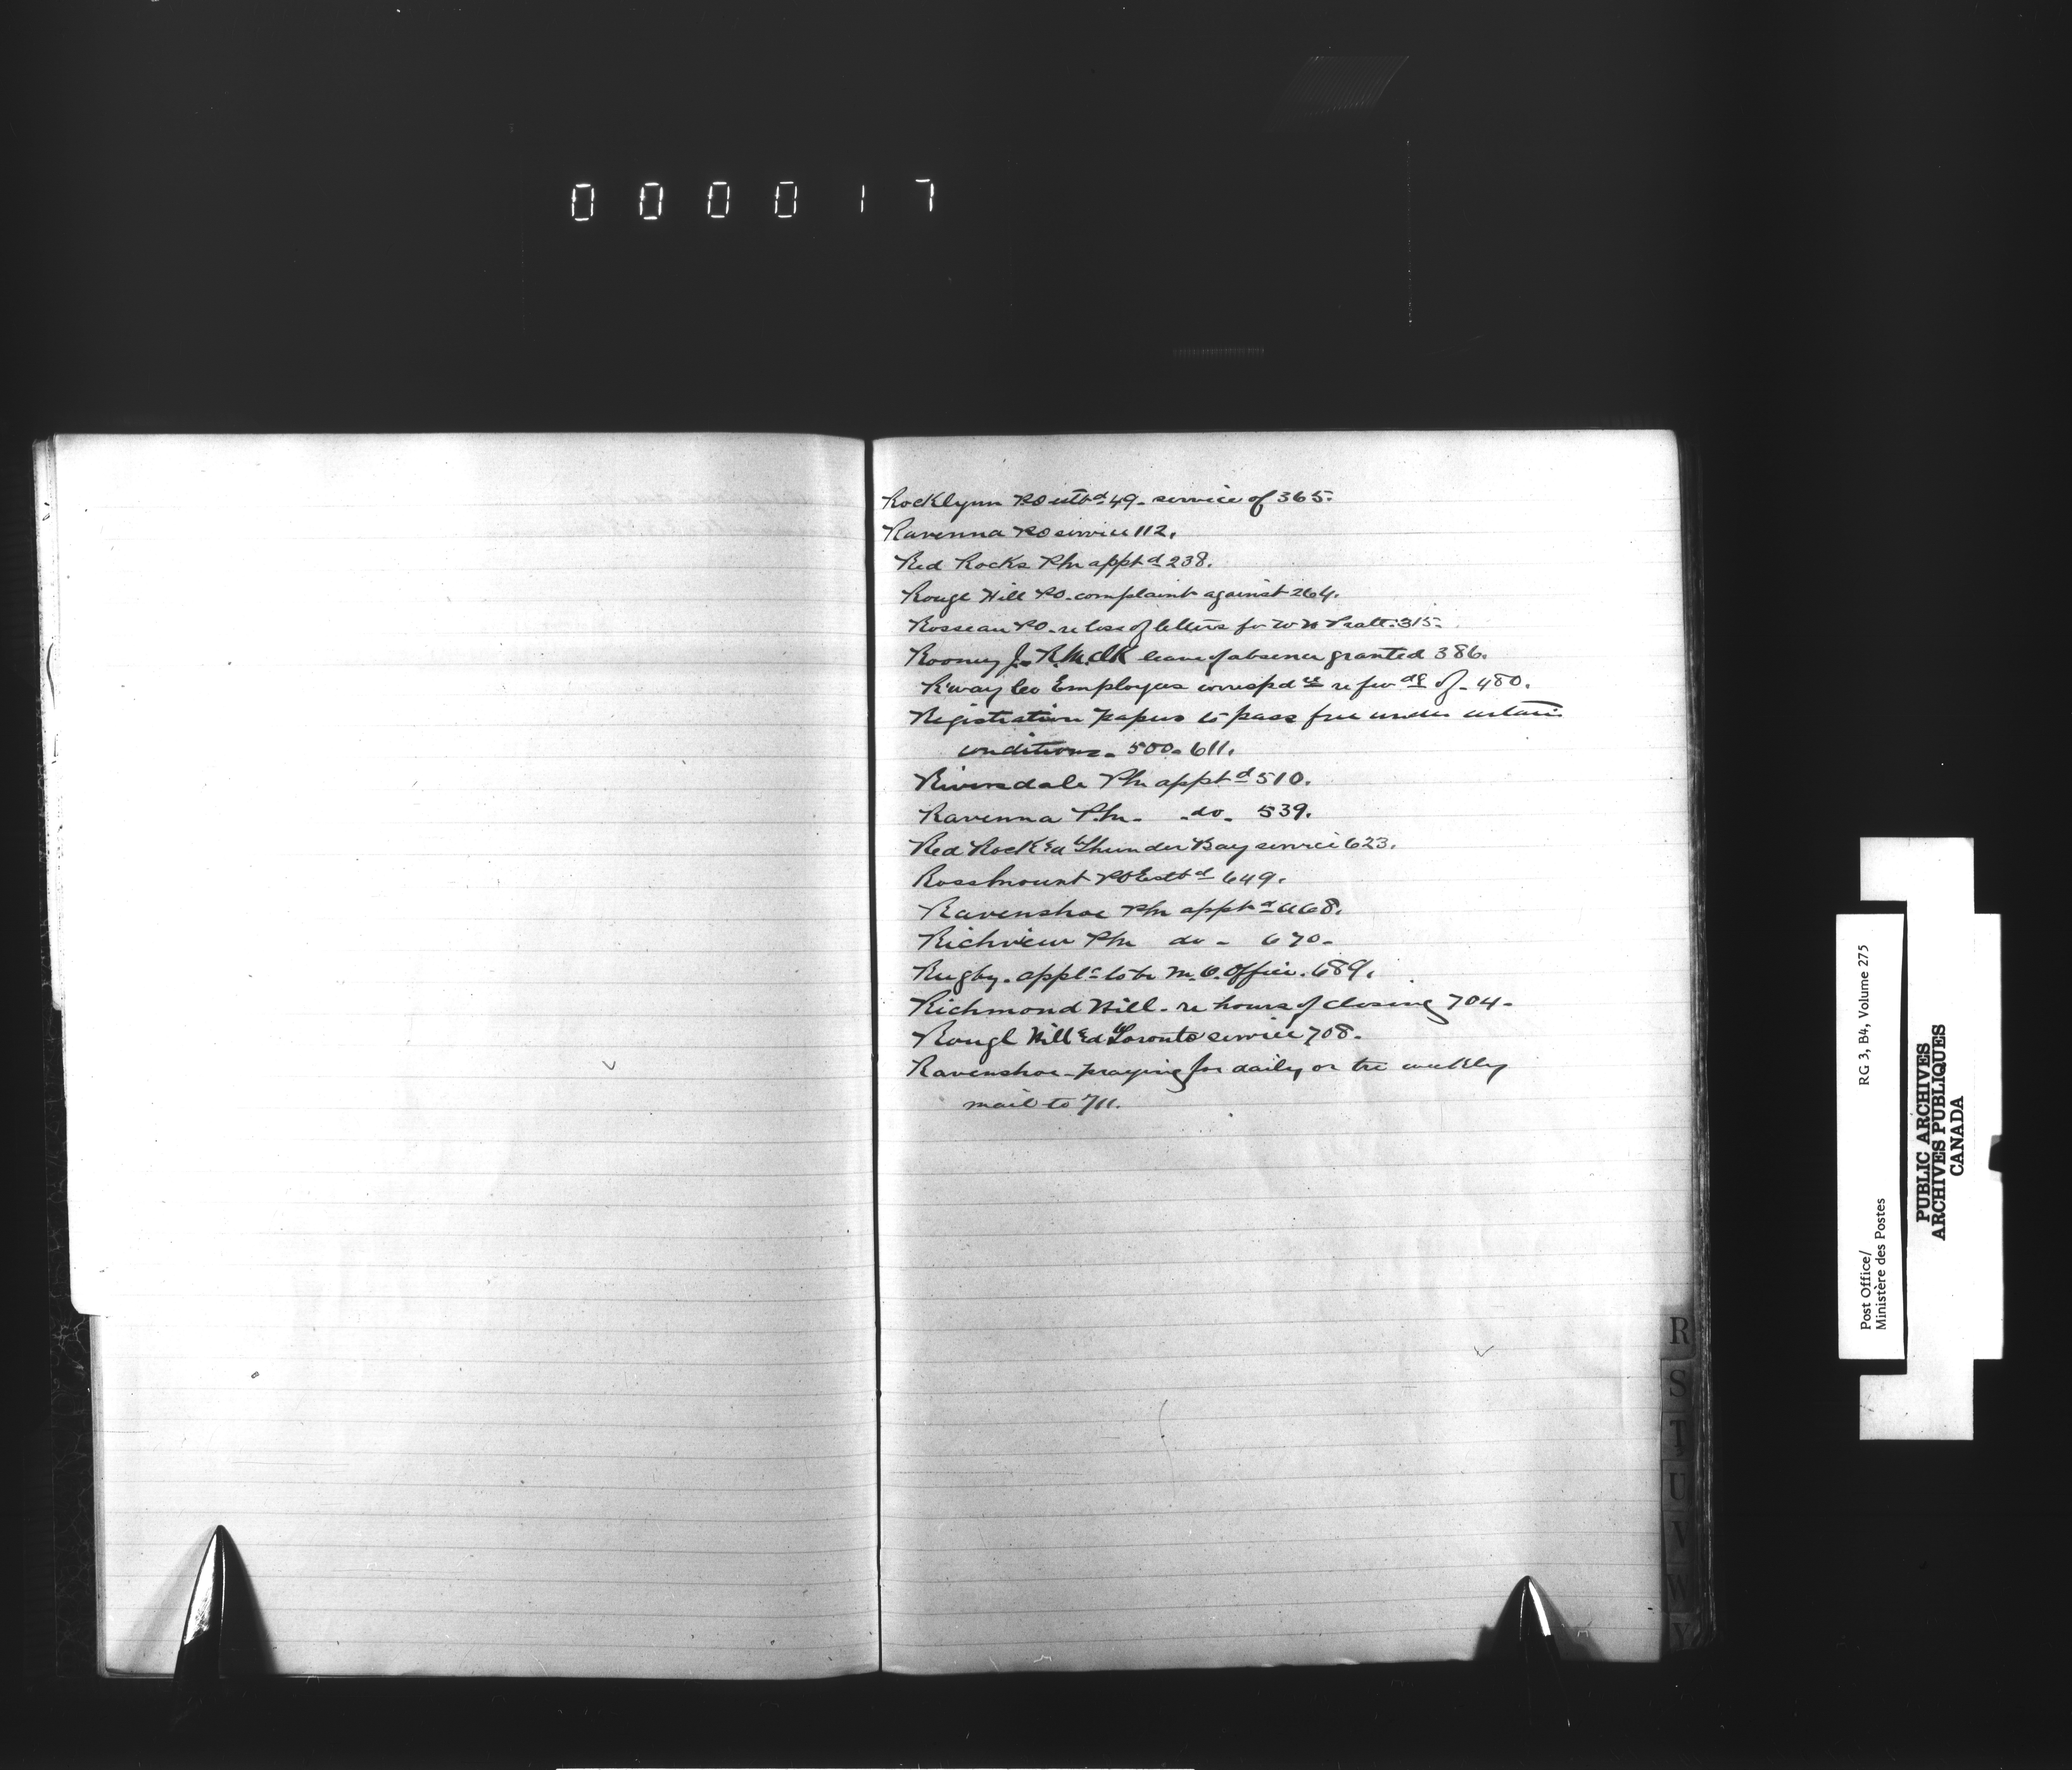 000017
Rocklynn PO estbd 49 - service of 365.
Ravenna PO service 112.
Red Rocks Pm apptd 238.
Rouge Hill PO - complaint against 264.
Rosseau PO - re loss of letters for W H Pratt. 315.
Rooney J. R.M.ClK leave of absence granted 386.
R'way Co Employees correspdce re fwdg of - 480.
Registration papers to pass free under certain
conditions - 500 - 611.
Riversdale Pm apptd 510.
Ravenna P.m. - do - 539.
Red Rock & Thunder Bay service 623.
Rossmount PO Estbd 649.
Ravenshoe Pm apptd 668.
Richview Pm do - 670 -
Rugby. appln to be M.O. Office. 689.
Richmond Hill - re hours of closing 704 -
Rouge Hill & Toronto service 708 -
Ravenshoe - praying for daily or tri weekly
mail to 711.
R
S
T
U
V
W
Y
Post Office/
Ministère des Postes
RG 3, B4, Volume 275
PUBLIC ARCHIVES
ARCHIVES PUBLIQUES
CANADA